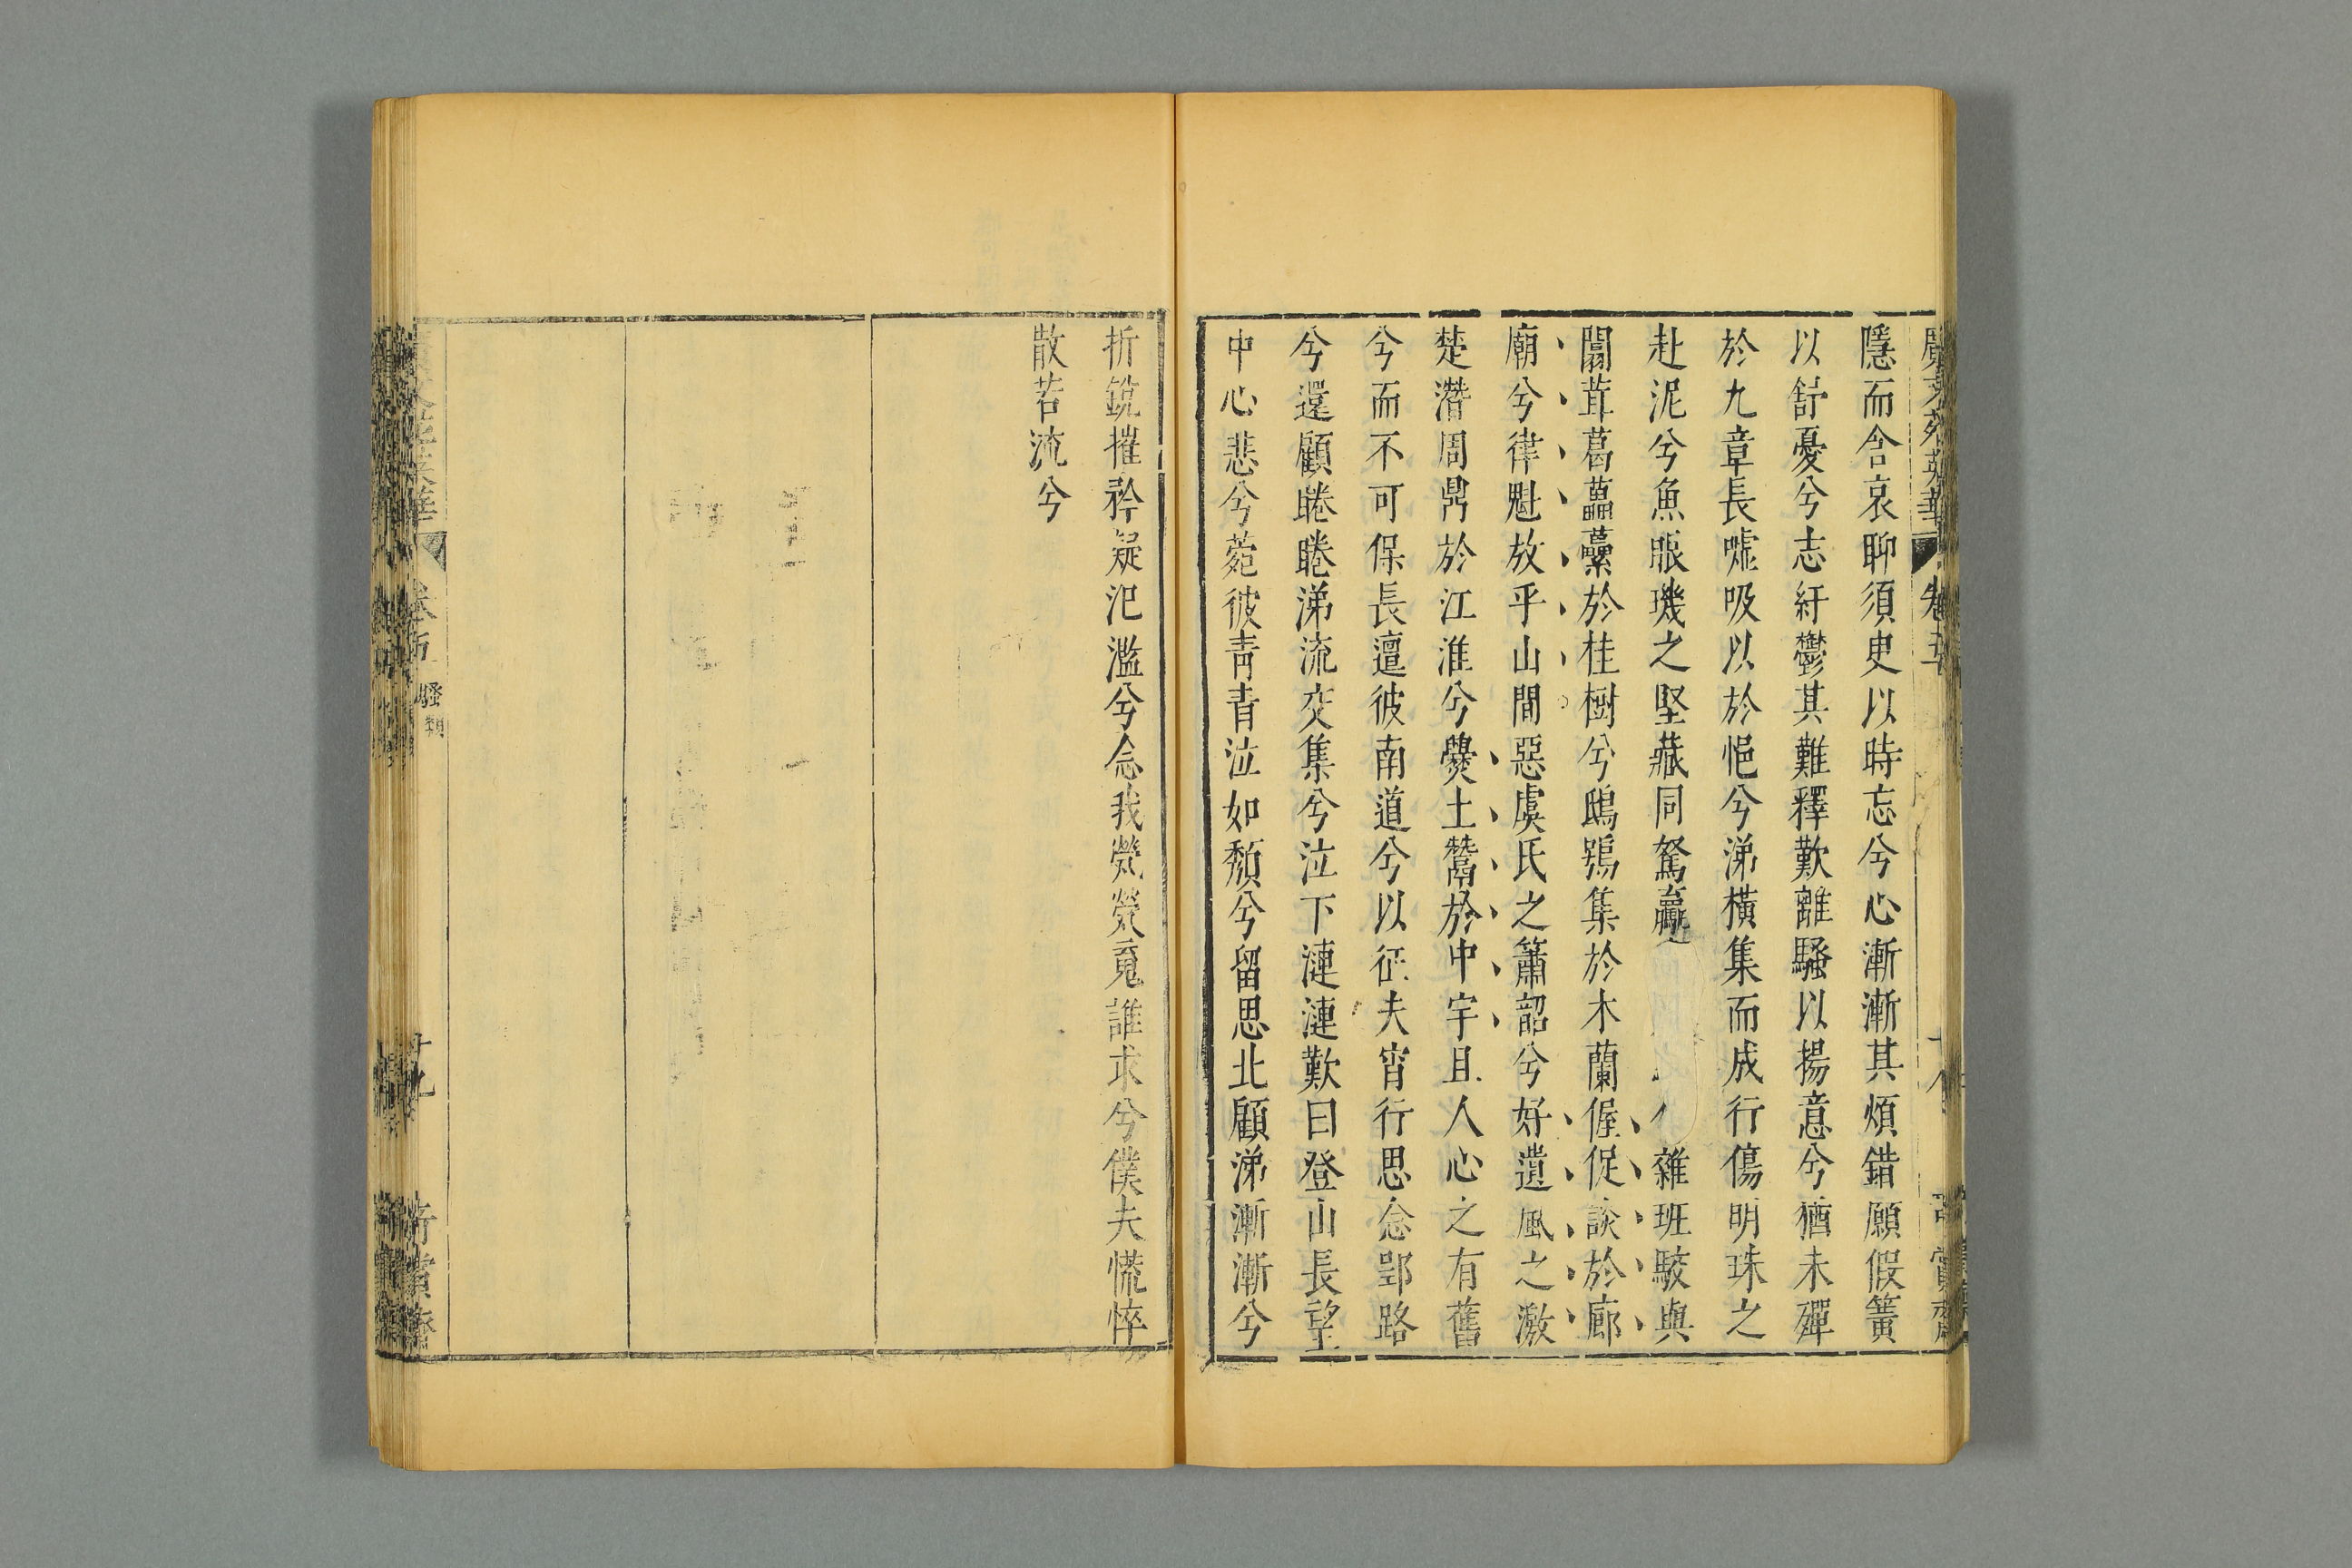 廣文苑英華 卷五
隱而含哀聊須臾以時忘兮心漸漸其煩錯願假簧
以舒憂兮志紆鬱其難釋歎離騷以揚意兮猶未殫
於九章長噓吸以於悒兮涕橫集而成行傷明珠之
赴泥兮魚眼璣之堅藏同駑驘 雜班駁與
闒茸葛藟虆於桂樹兮鴟鴞集於木蘭偓促談於廊
廟兮律魁放乎山間惡虞氏之簫韶兮好遺風之激
楚潛周鼎於江淮兮爨土鬵於中宇且人心之有舊
兮而不可保長邅彼南道兮以征夫宵行思念郢路
兮還顧睠睠涕流交集兮泣下漣漣歎曰登山長望
中心悲兮菀彼青青泣如頹兮留思北顧涕漸漸兮
折銳摧矜凝汜濫兮念我煢煢䰟誰求兮僕夫慌悴
散若流兮
卷五 騷類 十九